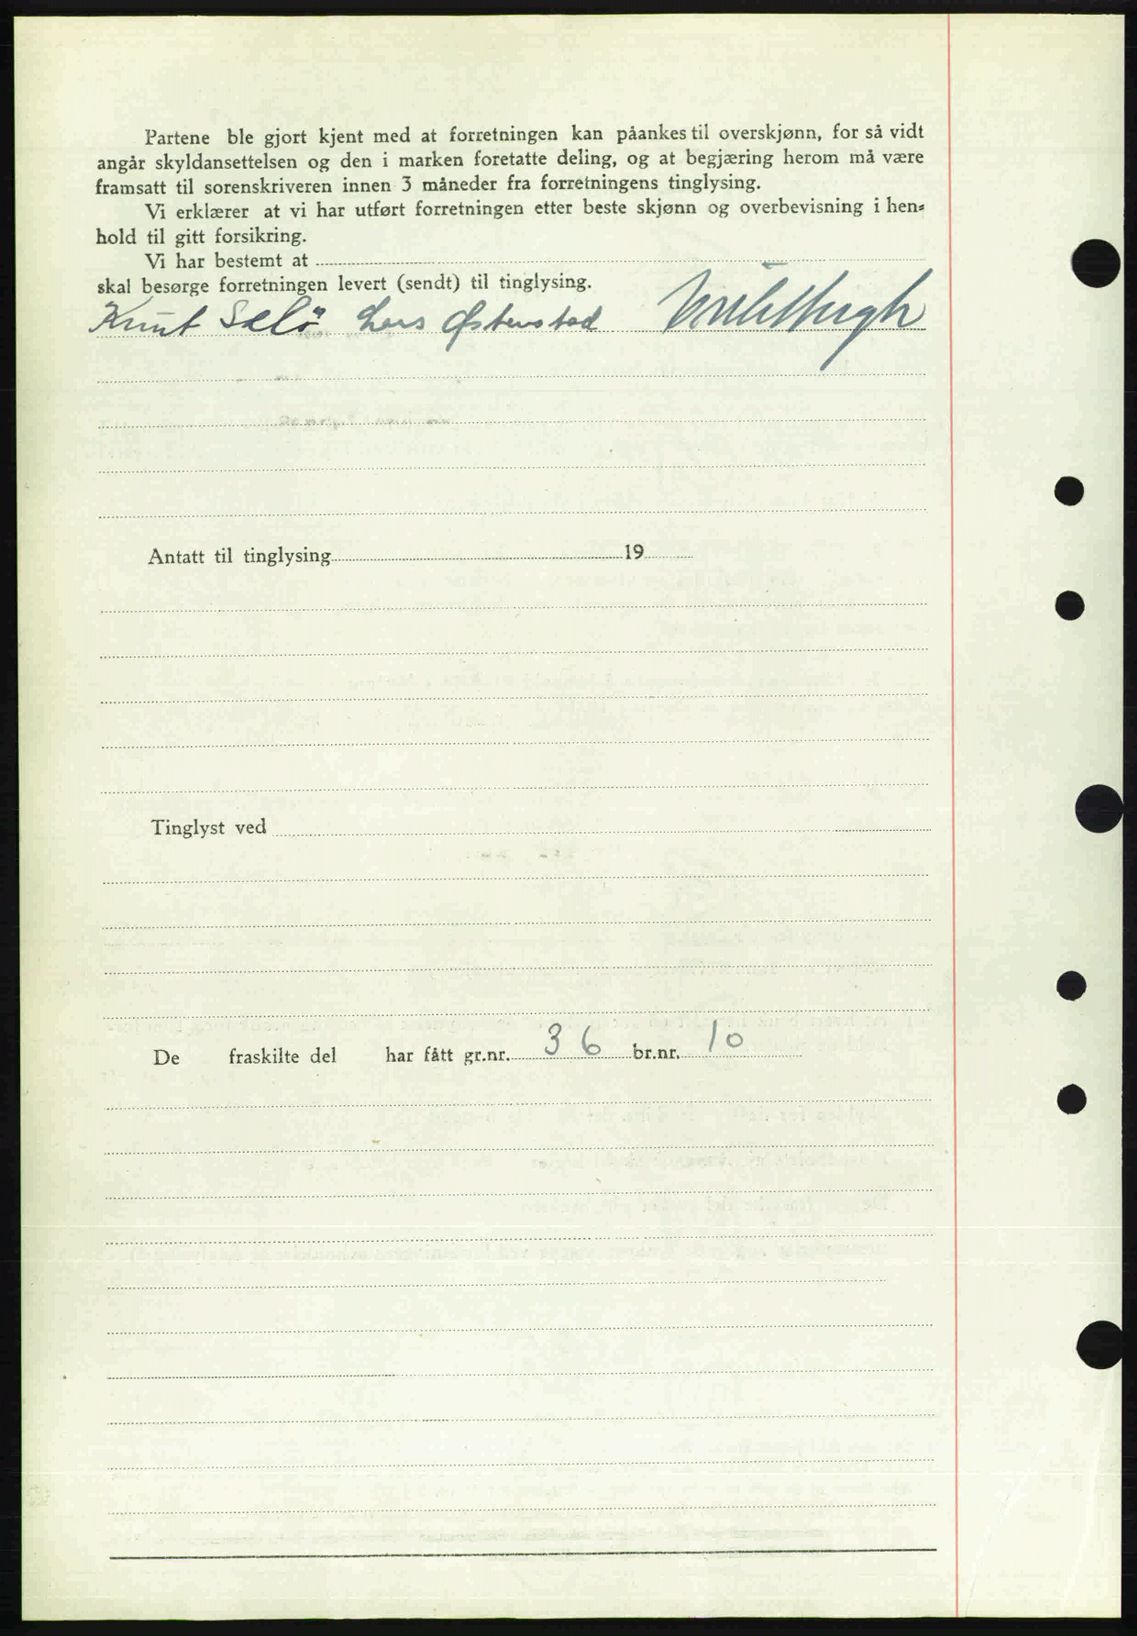 Partene ble gjort kjent med at forretningen kan påankes til overskjønn, for så vidt
angår skyldansettelsen og den i marken foretatte deling, og at begjæring herom må være
framsatt til sorenskriveren innen 3 måneder fra forretningens tinglysing.
Vi erklærer at vi har utført forretningen etter beste skjønn og overbevisning i hen-
hold til gitt forsikring.
Vi har bestemt at
skal besørge forretningen levert (sendt) til tinglysing.
Knut Selö Lars Østenstad
Antatt til tinglysing 19
Tinglyst ved
De fraskilte del har fått gr.nr. 36 br.nr. 10